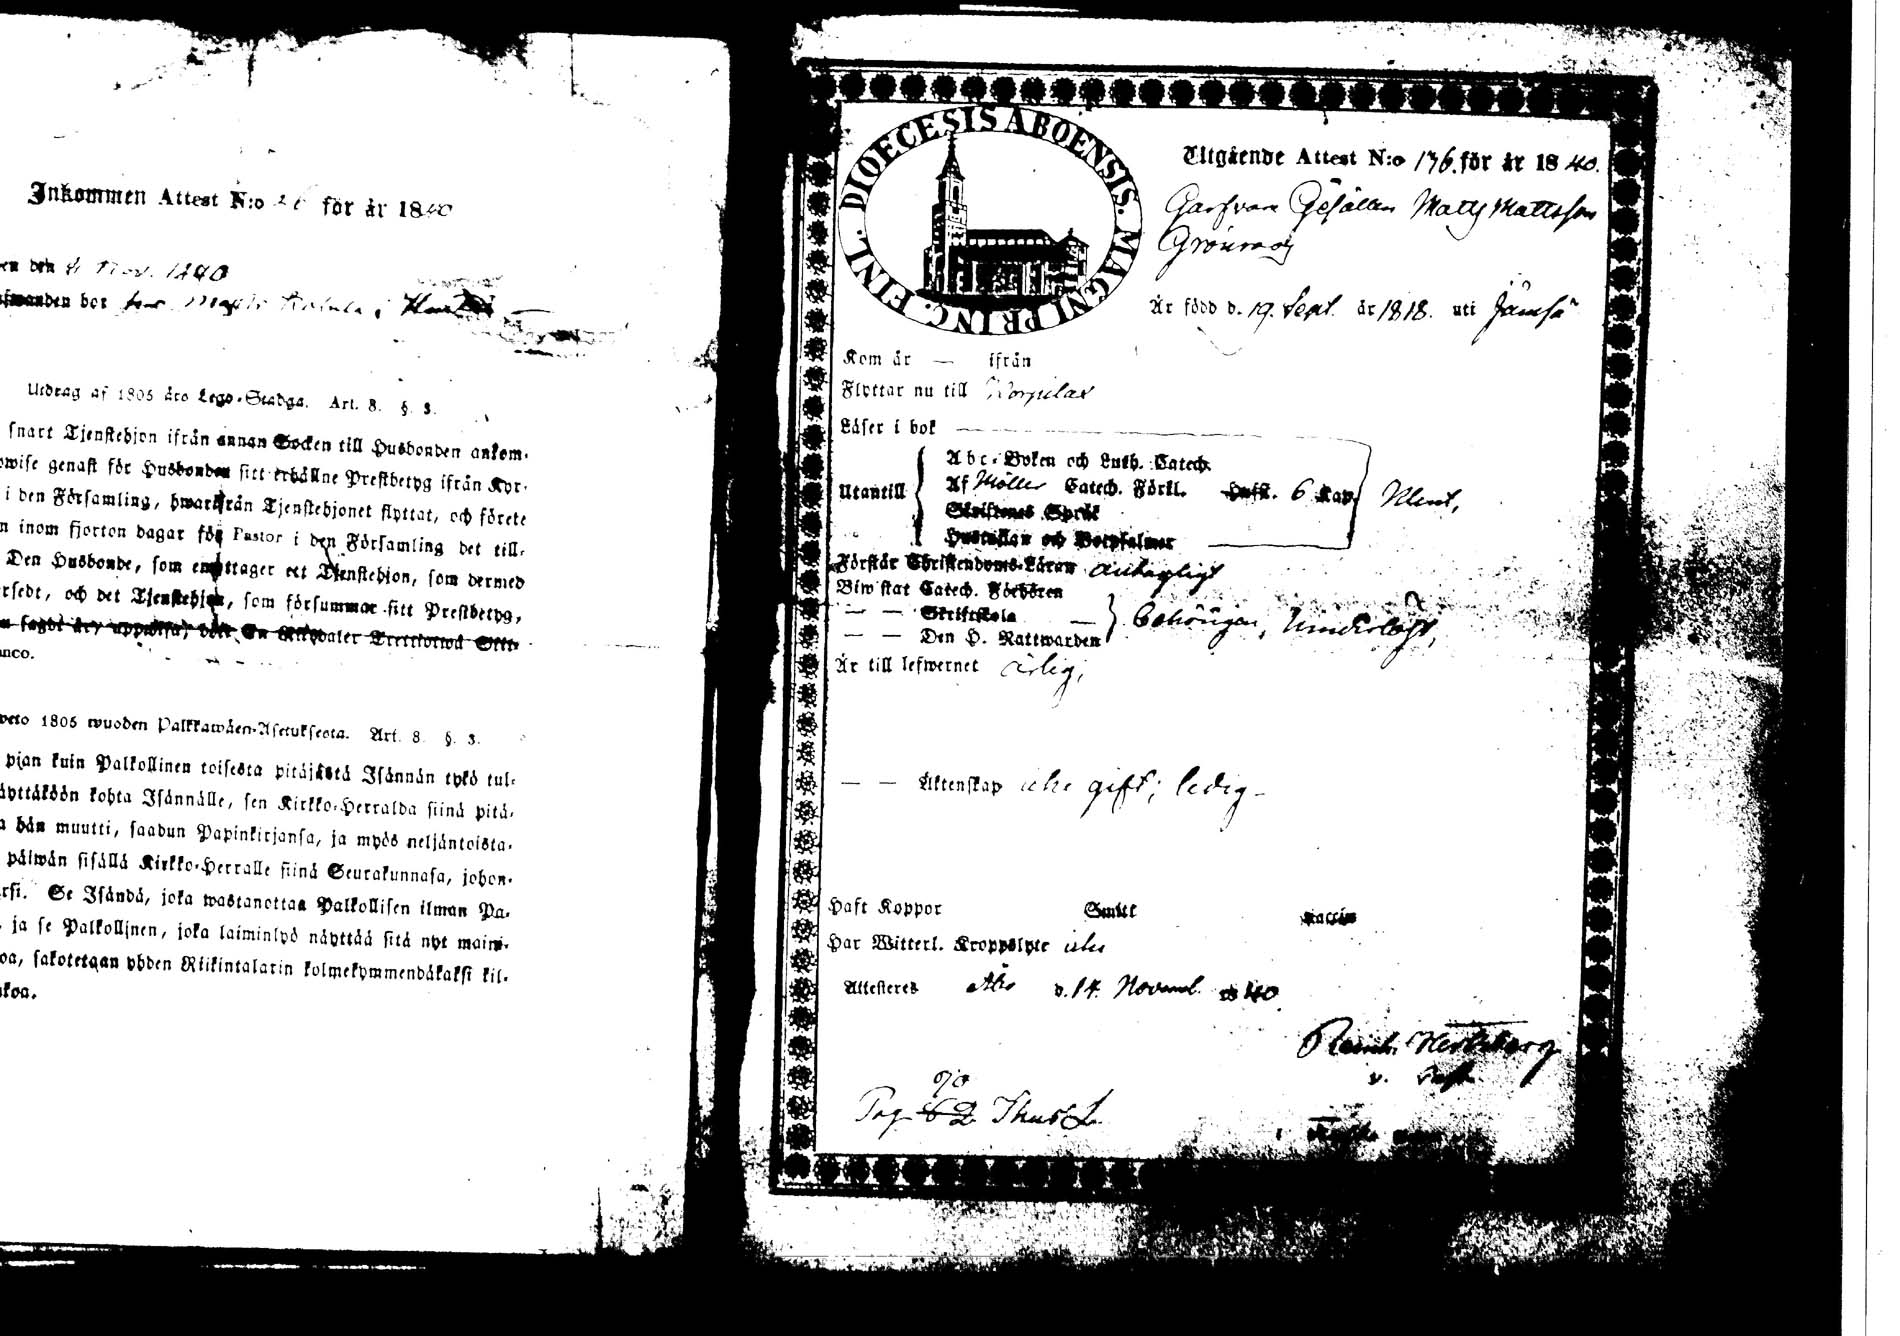 Inkommen Attest N:o 26 för år 1840
en den 21 Nov. 1840
wanden bor hos
Utdrag af 1805 års Lego-Stadga. Art. 8. §. 3.
snart Tjenstehjon ifrån annan Socken till Husbonden ankom-
wise genast för Husbonden sitt erhållne Prestbetyg ifrån Kyr-
i den Församling, hwarifrån Tjenstehjonet flyttat, och förete
n inom fjorton dagar för Pastor i den Församling det till-
Den Husbonde, som emottager ett Tjenstehjon, som dermed
rsedt, och det Tjenstehjon, som försummar sitt Prestbetyg,
n sagdt är, uppwisa, böte En Riksdaler Trettiotwå Skil-
anco.
weto 1805 wuoden Palkkawäen-Asetuksesta. Art. 8. §. 3.
pian kuin Palkollinen toisesta pitäjästä Isännän tykö tul-
äyttäköön kohta Isännälle, sen Kirkko-Herralda siinä pitä-
a hän muutti, saadun Papinkirjansa, ja myös neljäntoista-
päiwän sisällä Kirkko-Herralle siinä Seurakunnasa, johon-
rsi. Se Isändä, joka wastanottaa Palkollisen ilman Pa-
ja se Palkollinen, joka laiminlyö näyttää sitä nyt maini-
oa, sakotetaan yhden Riikintalarin kolmekymmendäkaksi kil-
nkoa.
DIOECESIS ABOENSIS. MAGNI PRINC. FINL.
Utgående Attest N:o 176. för år 1840.
Garfvare Gesällen Matts Mattsson
Grönroos
Är född d. 19. Sept. år 1818. uti Jämsä
Kom år — ifrån
Flyttar nu till Korpilax
Läser i bok
Abc-Boken och Luth. Catech.
Utantill Af Möller Catech. Förkl. Hufst. 6 Kap. Klent,
Skriftenes Språk
Hustaflan och Botpsalmer
Förstår Christendoms-Läran antagligt
Biwistat Catech. Förhören
— — Skriftskola — behörigen,
— — Den H. Nattwarden
Är till lefwernet ärlig,
— — Äktenskap icke gift; ledig
Haft Koppor Smitt Vaccin
Har Witterl. Kroppslyte icke
Attesteres Åbo d. 14. Novemb. 1840
Reinh. Hertzberg
v. Past.
90
Pag